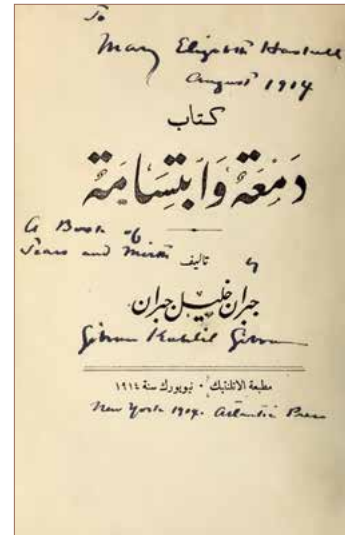 To
Mary Elizabeth Haskell
August 1914
كتاب
دَمعَة وَابتِسَامَة
A Book of
Tears and Mirth
تاليف
by
جبران خليل جبران
Gibran Kahlil Gibran
مطبعة الاتلنتيك • نيويورك سنة ١٩١٤
New York 1914. Atlantic Press